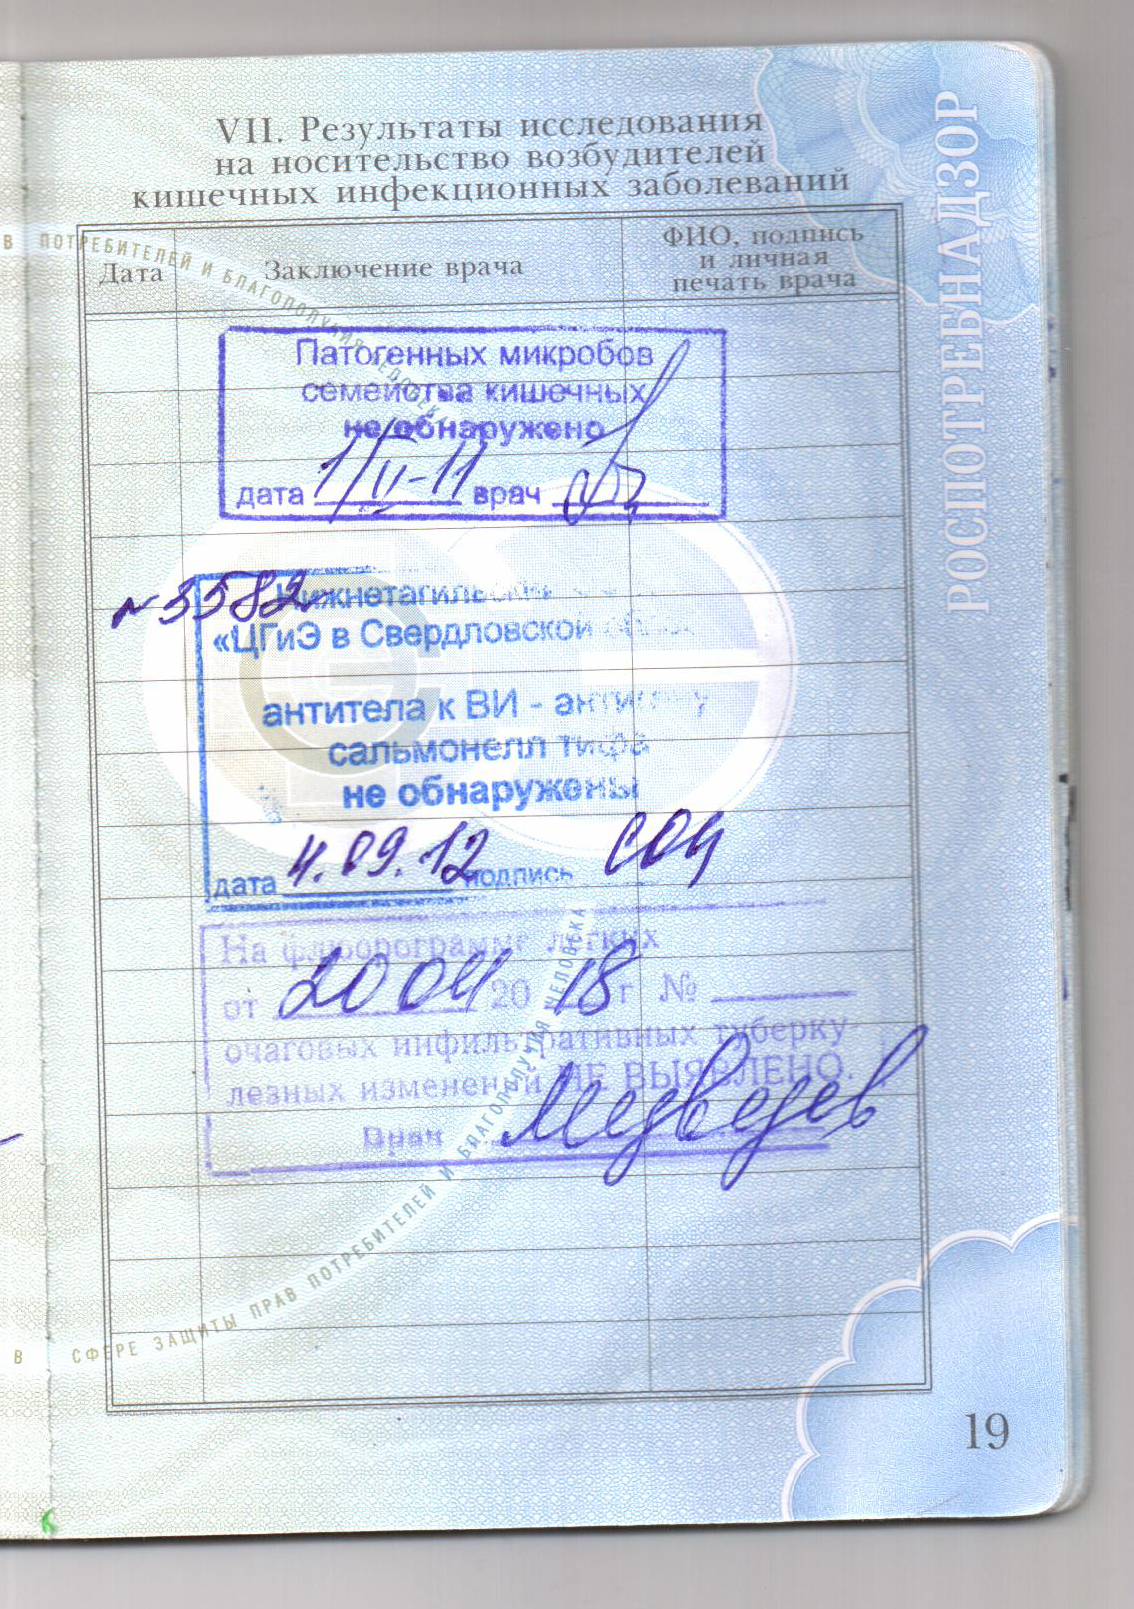 VII. Результаты исследования
на носительство возбудителей
кишечных инфекционных заболеваний
Дата
Заключение врача
ФИО, подпись
и личная
печать врача
РОСПОТРЕБНАДЗОР
В ПОТРЕБИТЕЛЕЙ И БЛАГОПОЛУЧИЯ ЧЕЛОВЕКА
Патогенных микробов
семейства кишечных
не обнаружено
дата 1/II-11 врач
N 3582
Нижнетагильский
«ЦГиЭ в Свердловской
антитела к ВИ - антигену
сальмонелл тифа
не обнаружены
дата 4.09.12 подпись
На флюорограмме легких
от 2004 2018 г №
очаговых инфильтративных туберку-
лезных изменений НЕ ВЫЯВЛЕНО.
Врач Медведев
В СФЕРЕ ЗАЩИТЫ ПРАВ ПОТРЕБИТЕЛЕЙ И БЛАГОПОЛУЧИЯ ЧЕЛОВЕКА
19